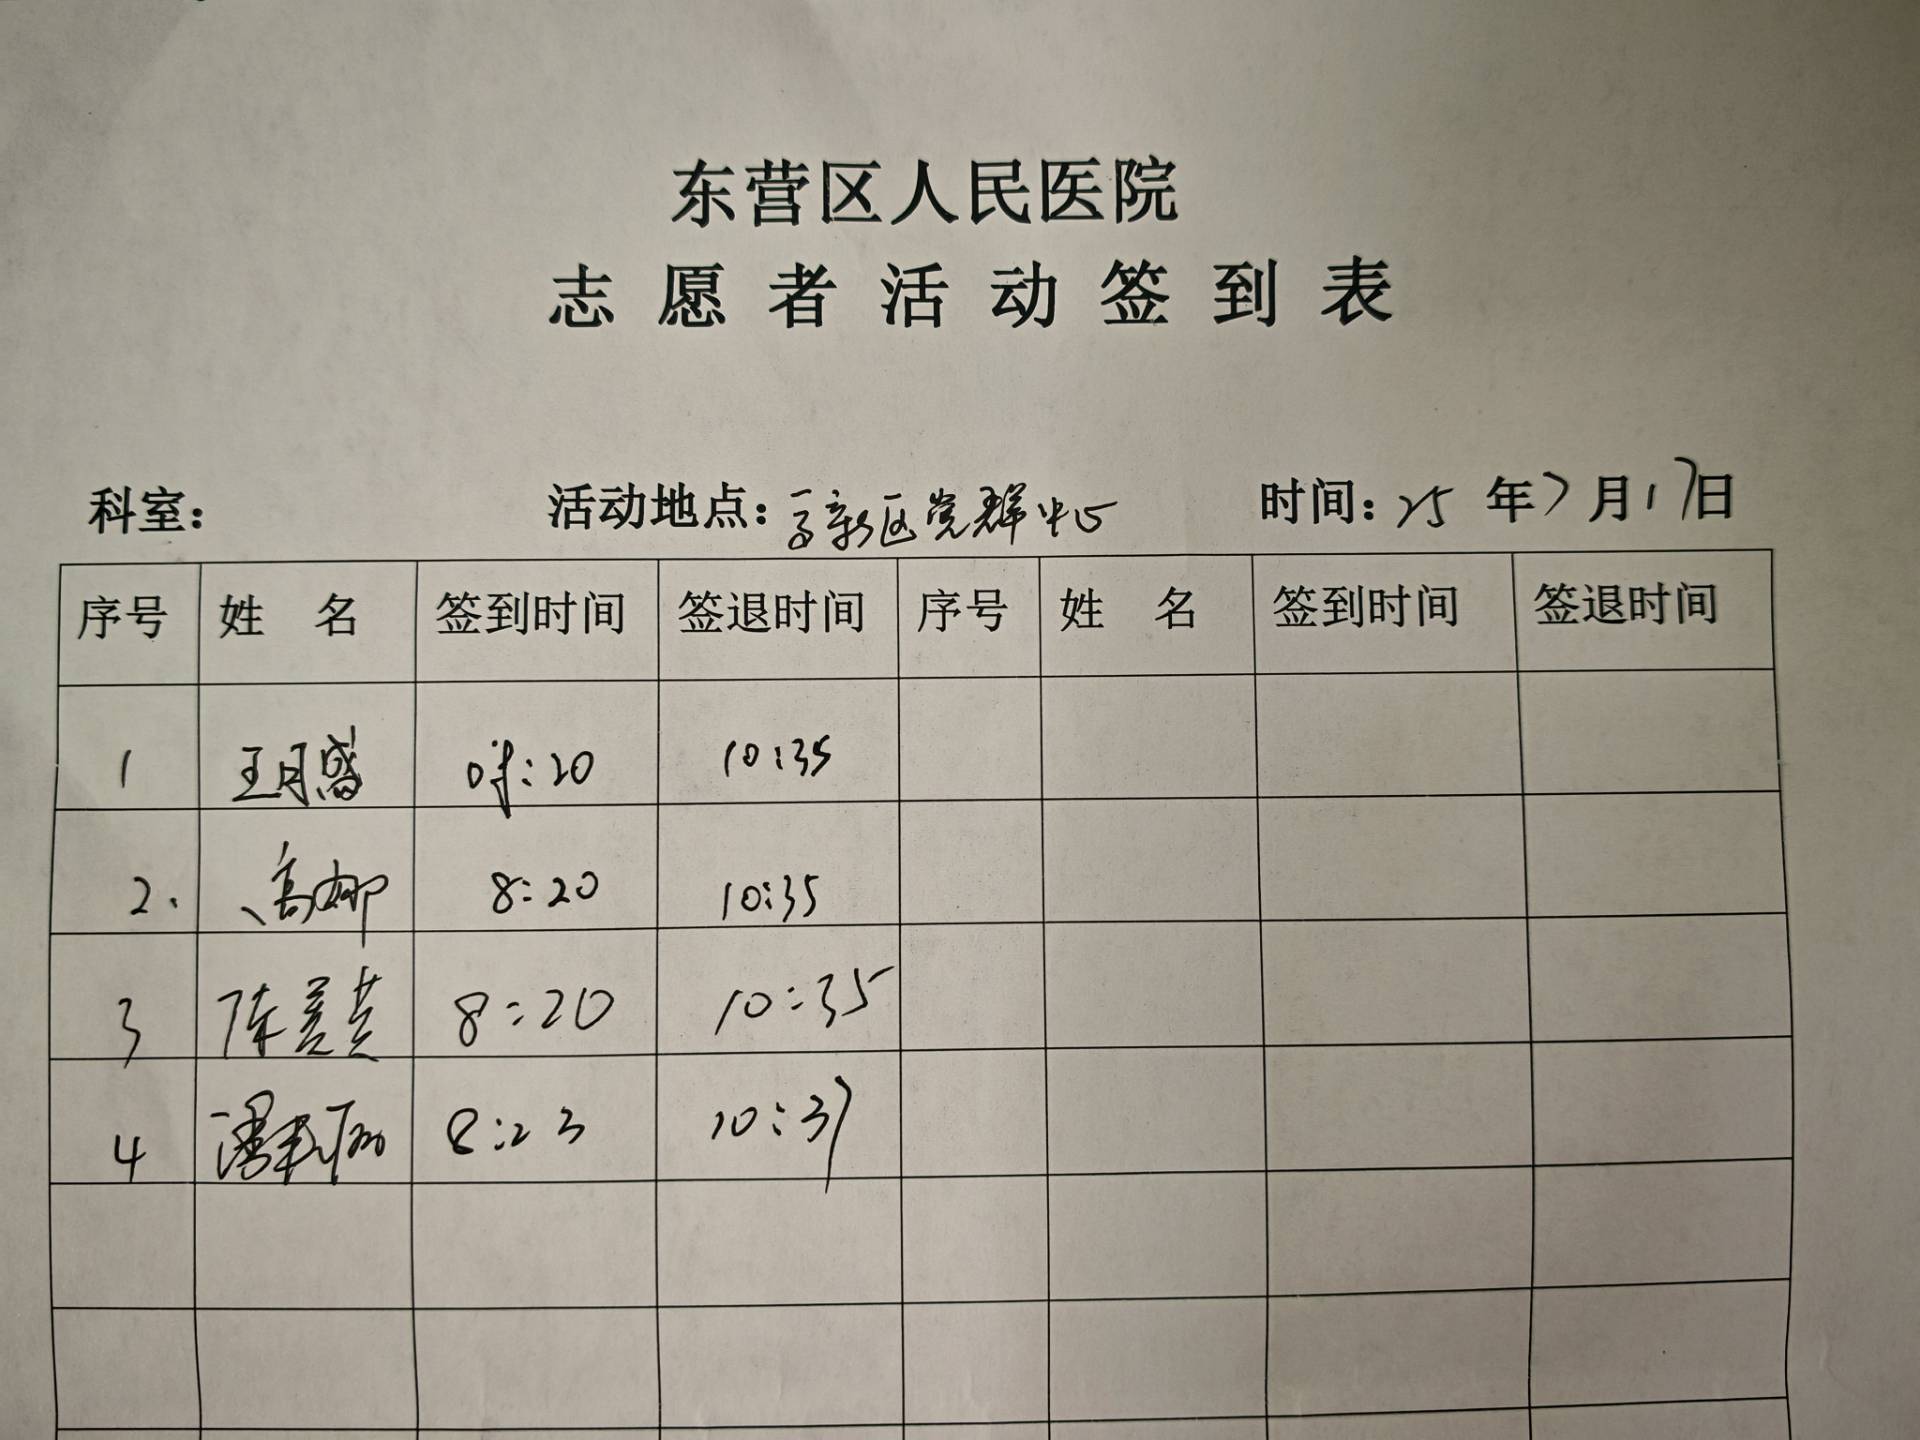 东营区人民医院
志愿者活动签到表
科室： 活动地点：高新区党群中心 时间：25年7月17日
序号 姓名 签到时间 签退时间 序号 姓名 签到时间 签退时间
1 王月 :20 10:35
2. 高娜 8:20 10:35
3 陈 8:20 10:35
4 潘 8:23 10:37